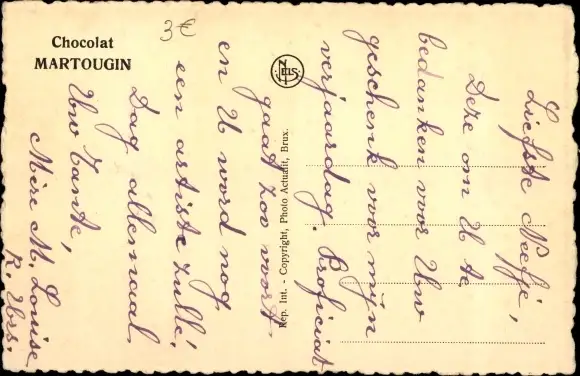 Chocolat
MARTOUGIN
3€
ELS
Rep. Int. - Copyright, Photo Actualit, Brux.
Liefste Neefje,
Deze om U te
bedanken voor Uw
geschenk voor mijn
verjaardag. Proficiat
gaat zoo voort
en U word nog
een artiste zulle!
Dag allemaal
Uw Tante,
Mère M. Louise
R. Urs.